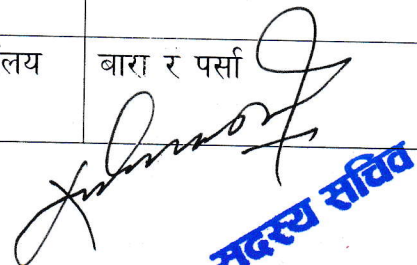 लय बारा र पर्सा
सदस्य सचिव